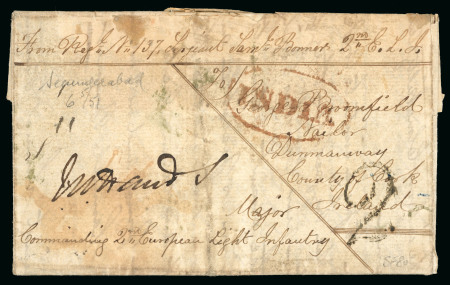 From Regtl. No. 137, Serjeant Saml. Bonner 2nd E. L. I.
Secunderabad
6/51
To
INDIA
Broomfield
Tailor
Dunmanway
County of Cork
Ireland
2
Major
Commanding 2nd European Light Infantry